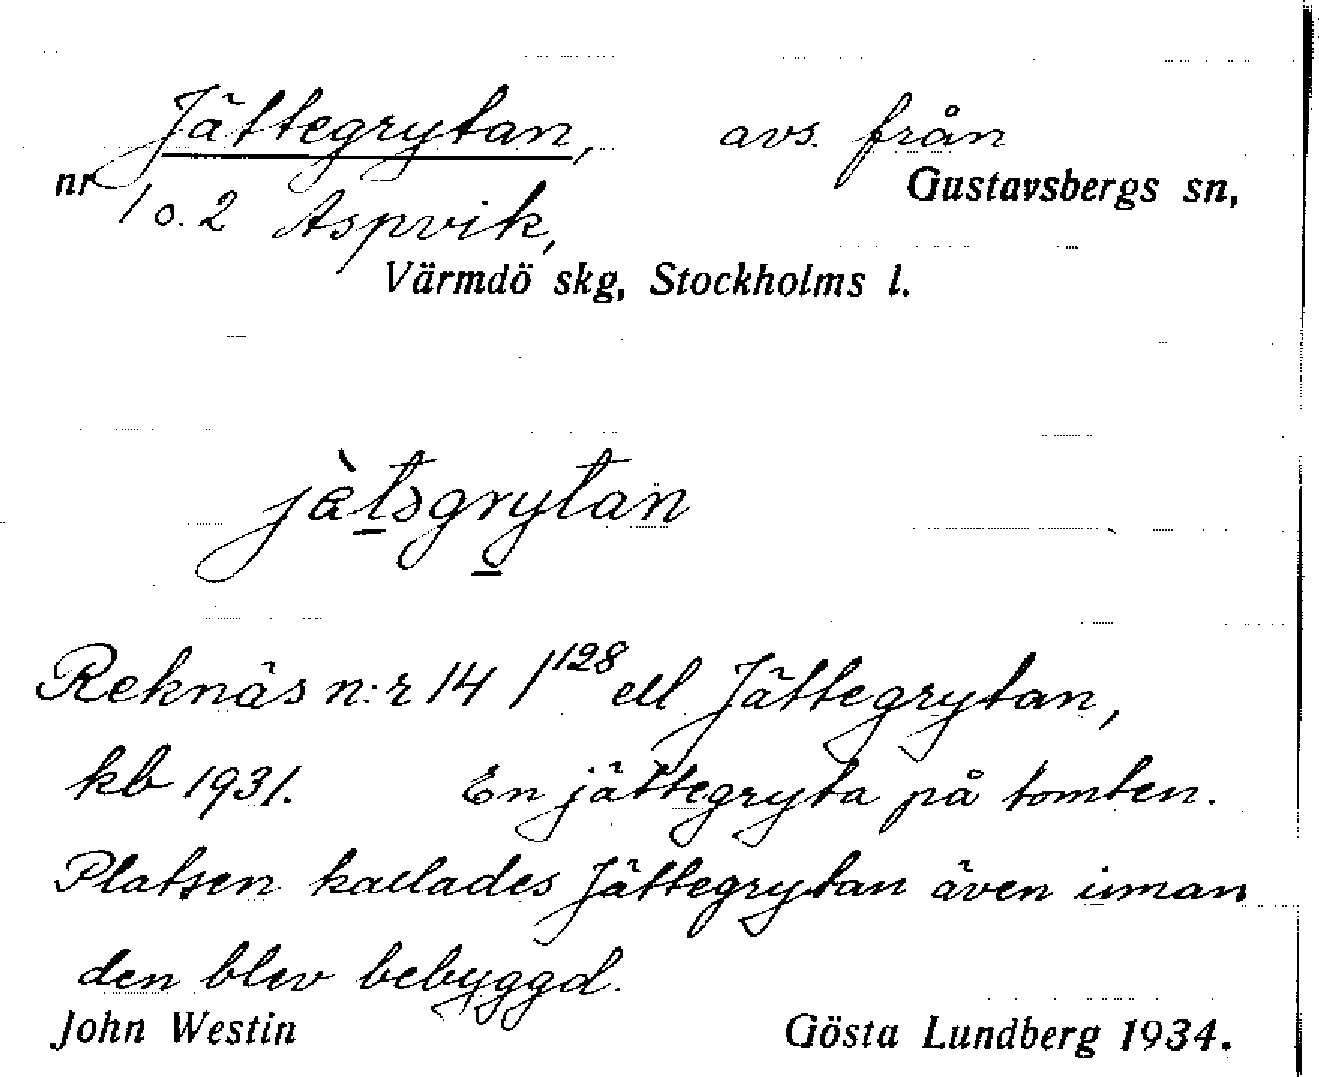 Jättegrytan, avs. från
nr 1 o. 2 Aspvik, Gustavsbergs sn,
Värmdö skg, Stockholms l.
jàtsgrytan
Reknäs n:r 14/128 ell Jättegrytan,
kb 1931. En jättegryta på tomten.
Platsen kallades Jättegrytan även innan
den blev bebyggd.
John Westin Gösta Lundberg 1934.